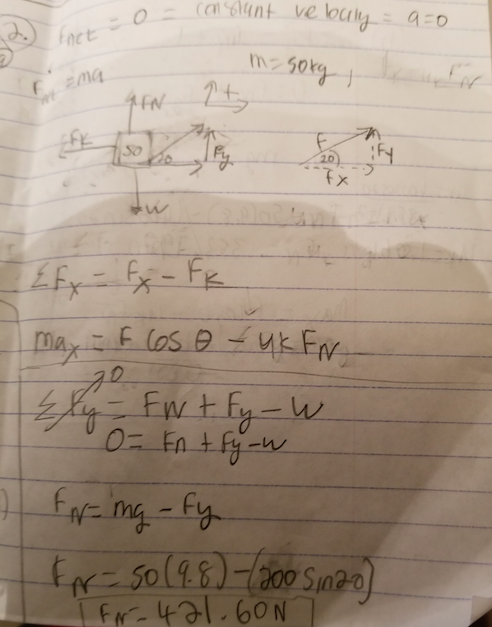 2.
Fnet = 0 = constant velocity = a=0
Fnet = ma
m = 50kg,
FN
+
Fk
50
20
Fy
W
F
20
Fy
Fx
ΣFx = Fx - Fk
max = F cos θ - μk FN
ΣFy = FN + Fy - W
0
0 = Fn + Fy - w
FN = mg - Fy
FN = 50(9.8) - (200 sin20)
FN = 421.60N